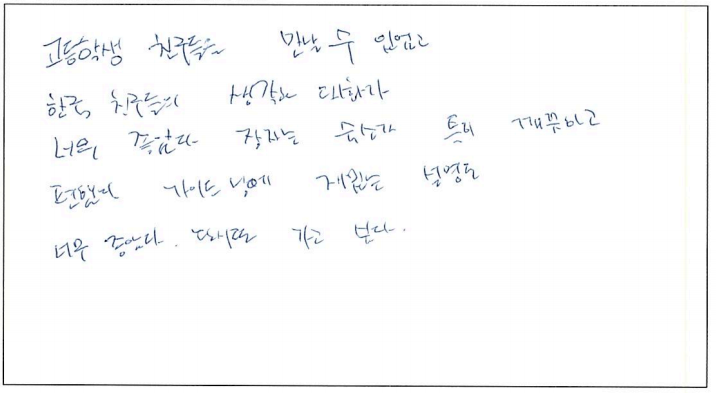 고등학생 친구들을 만날 수 있었고
한국 친구들의 생각과 대화가
너무 좋았다 잠자는 숙소가 특히 깨끗하고
편했다 가이드 님에 재밌는 설명도
너무 좋았다. 다시또 가고 싶다.